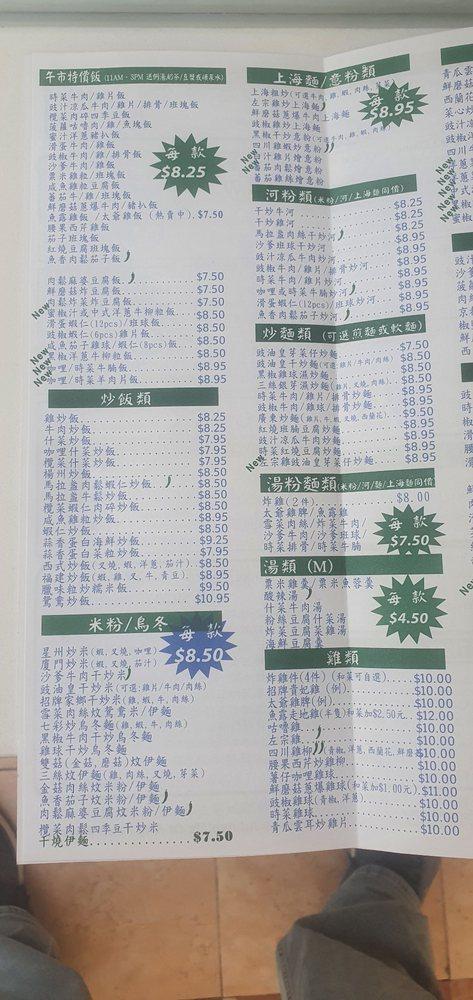 午市特價飯(11AM - 3PM 送例湯奶茶/豆漿或礦泉水)
時菜牛肉/雞片飯
豉汁涼瓜牛肉/雞片/排骨/班塊飯
欖菜肉碎四季豆飯
菠蘿咕嚕肉/雞/魚塊飯
蜜汁洋蔥豬扒飯
滑蛋牛肉/雞飯
豉椒牛肉/雞/排骨飯
沙爹牛肉/雞飯
粟米雞粒/班塊飯
咸魚雞粒豆腐飯
蕃茄牛/雞/班塊飯
鮮磨菇蔥爆牛肉/豬扒飯
每 款
$8.25
魚露雞飯/太爺雞飯 (熱賣中).$7.50
腰果西芹雞飯
茄子班塊飯
紅燒豆腐班塊飯
魚香肉鬆茄子飯
肉鬆麻婆豆腐飯 $7.50
鮮磨菇炸豆腐飯 $7.50
肉鬆炸菜炸豆腐飯 $7.50
New 蜜椒汁或中式洋蔥牛柳粒飯 $8.50
滑蛋蝦仁(12pcs)/班球飯 $8.50
New 豉椒蝦仁(6pcs)雞片飯 $8.50
New 咸魚茄子雞球/蝦仁(8pcs)飯 $8.50
New 黑椒洋蔥牛柳粒飯 $8.50
New 咖哩/時菜牛腩飯 $8.95
New 咖哩/時菜羊肉片飯 $8.95
炒飯類
雞炒飯 $8.25
牛肉炒飯 $8.25
什菜炒飯 $7.95
咖哩什菜炒飯 $7.95
欖菜什菜炒飯 $7.95
楊州炒飯 $8.50
馬拉盞肉鬆蝦仁炒飯 $8.50
馬拉盞牛鬆炒飯 $8.50
欖菜蝦仁肉碎炒飯 $8.50
咸魚雞粒炒飯 $8.95
蝦仁炒飯 $8.50
蒜香蛋白海鮮炒飯 $9.25
蒜香蛋白菜粒炒飯 $7.95
西式炒飯(叉燒,蝦,洋蔥,茄汁) $8.50
福建炒飯(蝦,雞,叉,牛,青豆) $8.95
臘味粒炒糯米飯 $9.50
鴛鴦炒飯 $10.95
米粉/烏冬
每 款
$8.50
星州炒米(蝦,叉燒,咖哩)
廈門炒米(蝦,叉燒,茄汁)
沙爹牛肉干炒米
豉油皇干炒米(可選:雞片/牛肉/肉絲)
招牌家鄉干炒米(雞,蝦,牛,肉絲)
雪菜肉絲炆鴛鴦米/伊麵
七彩炒烏冬麵(雞,蝦,牛,肉絲)
黑椒牛肉干炒烏冬麵
雞球干炒烏冬麵
雙菇(金菇,磨菇)炆伊麵
三絲炆伊麵(雞,肉絲,叉燒,芽菜)
金菇肉絲炆米粉/伊麵
魚香茄子炆米粉/伊麵
肉鬆麻婆豆腐炆米粉/伊麵
欖菜肉鬆四季豆干炒米
干燒伊麵 $7.50
上海麵/意粉類
上海粗炒(可選牛肉,雞,蝦,肉絲,芽菜)
左宗雞炒上海麵
鮮磨菇蔥爆牛肉上海麵
豉椒雞炒上海麵
黑椒干炒意粉(可選牛肉,雞,蝦,肉絲)
New 四川雞蝦炒意粉
茄汁雞片燴意粉
New 茄肉鬆燴意粉
蕃茄雞絲燴意粉
每 款
$8.95
河粉類(米粉/河/上海麵同價)
干炒牛河 $8.25
干炒雞河 $8.25
馬拉盞肉絲干炒河 $8.25
沙爹班球干炒河 $8.95
豉汁涼瓜牛肉炒河 $8.95
豉椒牛肉/雞片/排骨炒河 $8.95
時菜牛肉/雞片炒河 $8.95
咖哩或時菜牛腩炒河 $8.95
滑蛋蝦仁(12pcs)/班球炒河 $8.95
魚香肉鬆茄子炒河 $8.95
炒麵類 (可選煎麵或軟麵)
豉油皇芽菜仔炒麵 $7.50
豉油皇干炒麵(雞片/牛肉/肉絲) $8.50
黑椒雞球炒麵 $8.50
三絲銀芽濕炒麵(雞,叉燒,肉絲) $8.50
時菜牛肉/雞片/排骨炒麵 $8.95
豉椒牛肉/雞球/排骨炒麵 $8.95
廣東炒麵(雞片,牛,蝦,叉燒,西蘭花) $9.50
紅燒班腩豆腐炒麵 $8.95
豉汁涼瓜牛肉炒麵 $8.95
時菜紅燒豆腐炒麵 $8.95
New 左宗雞豉油皇芽菜仔炒麵 $8.95
湯粉麵類(米粉/河/麵/上海麵同價)
炸雞(2件) $8.00
太爺雞脾/魚露雞
雪菜肉絲/炸菜牛肉/
沙爹牛肉/沙爹班球/
時菜排骨/時菜牛腩
每 款
$7.50
湯類 (M)
粟米雞羹/粟米魚蓉羹
酸辣湯
什菜牛肉湯
粉絲豆腐什菜湯
炸菜豆腐菜雞湯
海鮮豆腐羹
每 款
$4.50
雞類
炸雞件(4件) (和菜可自選) $10.00
招牌貴妃雞 (例) $10.00
太爺雞脾(例) $10.00
魚露走地雞(半隻)和菜加$2.50元 $12.00
咕嚕雞 $10.00
左宗雞 $10.00
四川雞柳 (青椒,洋蔥,西蘭花,鮮磨菇) $10.00
腰果西芹炒雞柳 $10.00
薯仔咖哩雞球 $10.00
鮮磨菇蔥爆雞球(和菜加1.00元) $11.00
豉椒雞球(青椒,洋蔥) $10.00
時菜雞球 $10.00
青瓜雲耳炒雞片 $10.00